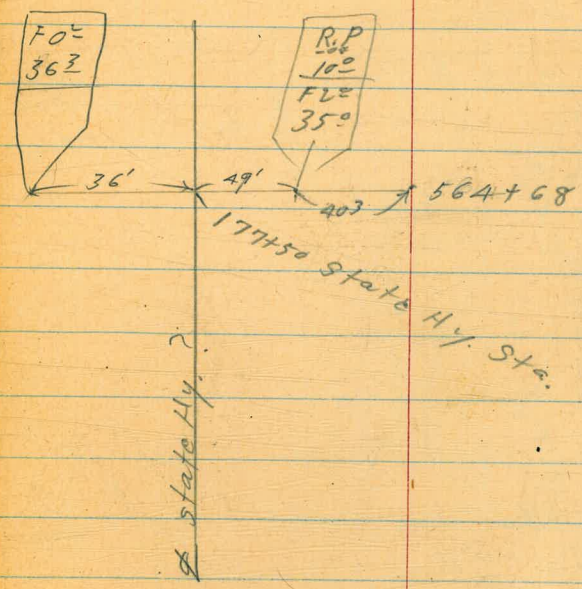 F 0º
36³
R.P
10º
F2º
35º
36'
49'
40³
564+68
177+50 State Hy. Sta.
℄ State Hy. ?